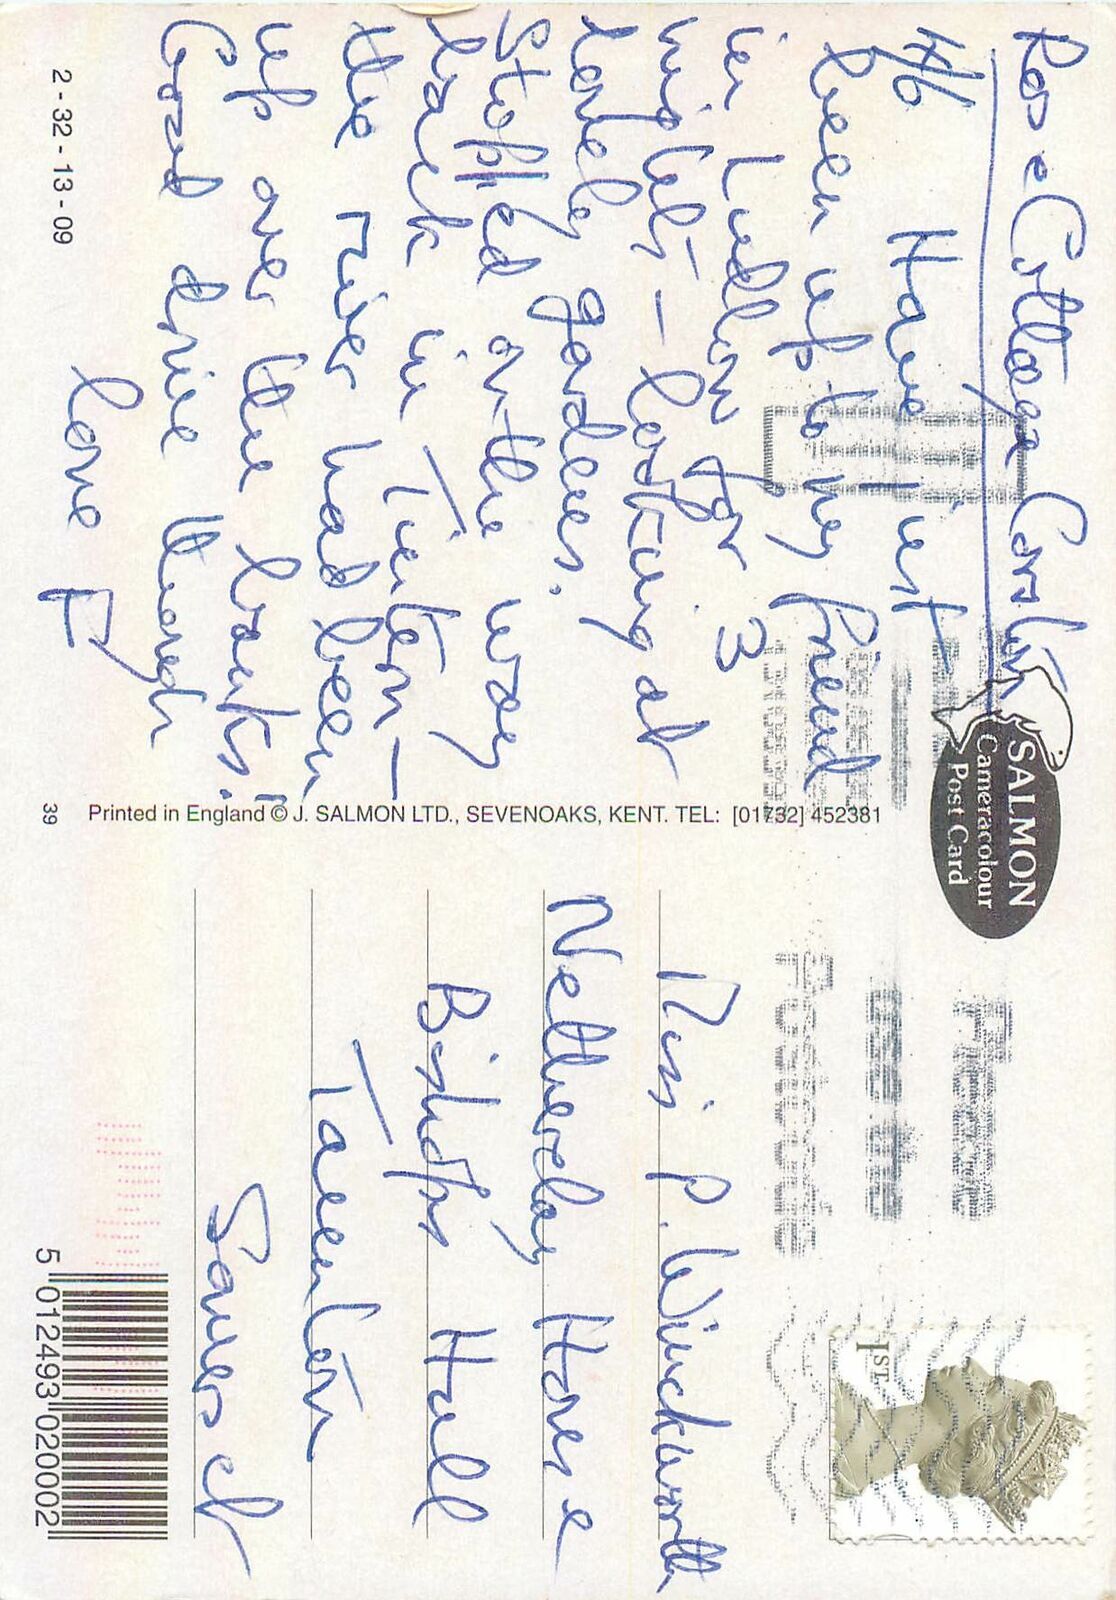 Rose Cottage Corston
4/6 Have just
been up to my friend
in Ludlow for 3
nights – looking at
lovely gardens.
Stopped on the way
back in Tintern –
the river had been
up over the banks!
Good drive though
love F
2 - 32 - 13 - 09
SALMON
Cameracolour
Post Card
39 Printed in England © J. SALMON LTD., SEVENOAKS, KENT. TEL: [01732] 452381
Please
use the
Postcode
1ST
Miss P. Winckworth
Netherclay House
Bishops Hull
Taunton
Somerset
5 012493 020002